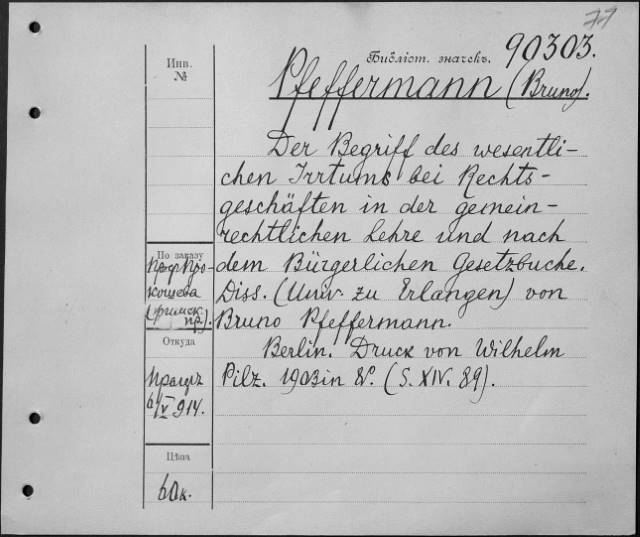 77
Инв.
№
Библіот. значекъ. 90303.
Pfeffermann (Bruno).
Der Begriff des wesentli-
chen Irrtums bei Rechts-
geschäften in der gemein-
rechtlichen Lehre und nach
dem Bürgerlichen Gesetzbuche.
Diss. (Univ. zu Erlangen) von
Bruno Pfeffermann.
Berlin. Druck von Wilhelm
Pilz. 1903 in 8°. (S. XIV. 89).
По заказу
Проф. Про-
кошева
(римск.
пр.).
Откуда
6/V 914.
Цѣна
60к.